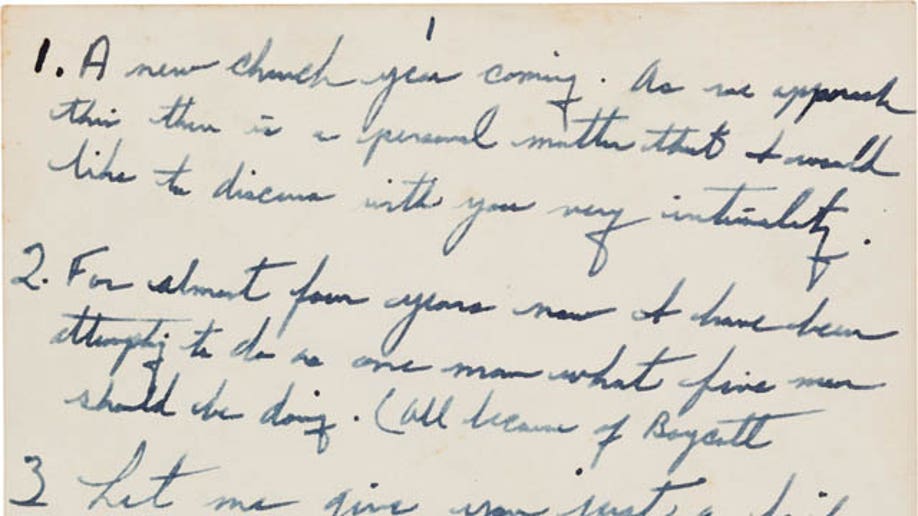 1
1. A new church year coming. As we approach
this then is a personal matter that I would
like to discuss with you very intimately.
2. For almost four years now I have been
attempting to do as one man what five men
should be doing. (All because of Boycott
3 Let me give you just a